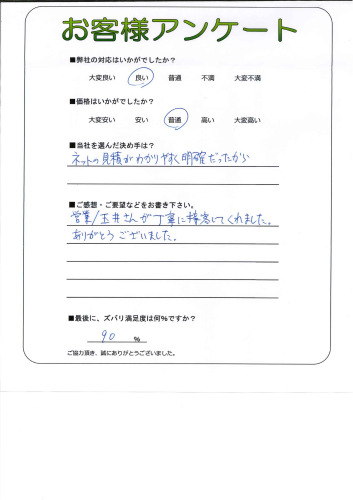 お客様アンケート
■弊社の対応はいかがでしたか？
大変良い 良い 普通 不満 大変不満
■価格はいかがでしたか？
大変安い 安い 普通 高い 大変高い
■当社を選んだ決め手は？
ネットの見積がわかりやすく明確だったから
■ご感想・ご要望などをお書き下さい。
営業/玉井さんが丁寧に接客してくれました。
ありがとうございました。
■最後に、ズバリ満足度は何％ですか？
90 %
ご協力頂き、誠にありがとうございました。